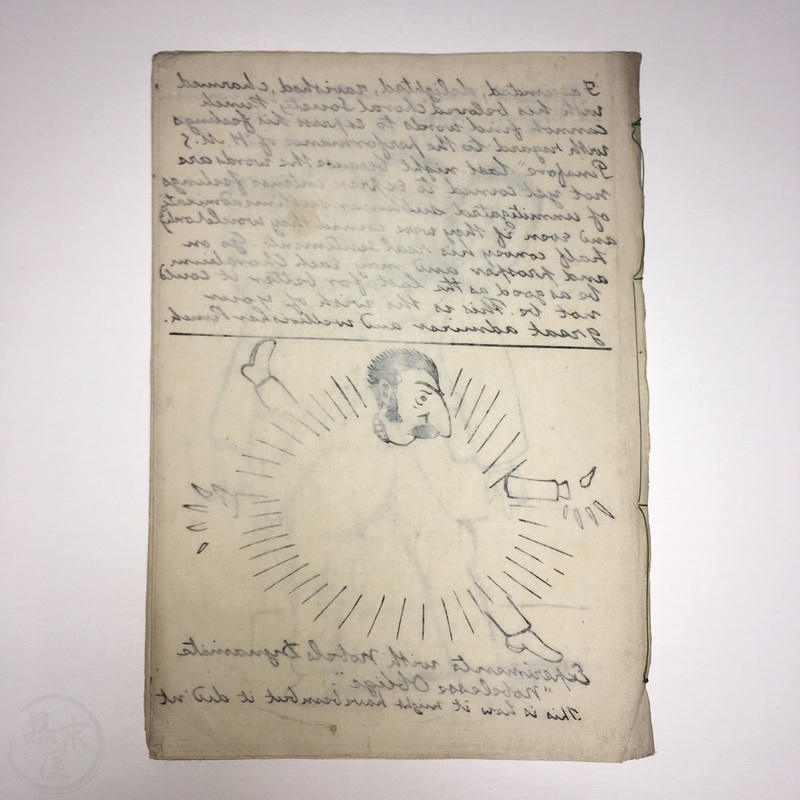 Fascinated, delighted, ravished, charmed
with his beloved Choral Society, Punch
cannot find words to express his feelings
with regard to the performance of H.M.S
Pinafore" last night because the words are
not yet coined to express intense feelings
of unmitigated
and even if they were coined they would only
half convey his real sentiments. Go on
and prosper and may each
be as good as the last for better it could
not be. This is the wish of your
great admirer and wellwisher Punch.
Experiments with Nobels Dynamite
"Nobelesse Oblige"
This is how it might have been but it did'nt
幕末屋